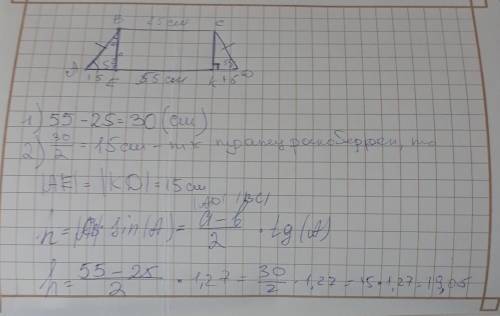 B 25 см C
A 15 E 55 см K 15 D
1) 55 - 25 = 30 (см)
2) 30/2 = 15 см - т к трапец равнобедрен, то
|AE| = |KD| = 15 см
|AD| |BC|
h = |AB| · sin(A) = a - b/2 · tg(A)
h = 55 - 25/2 · 1,27 = 30/2 · 1,27 = 15 · 1,27 = 19,05